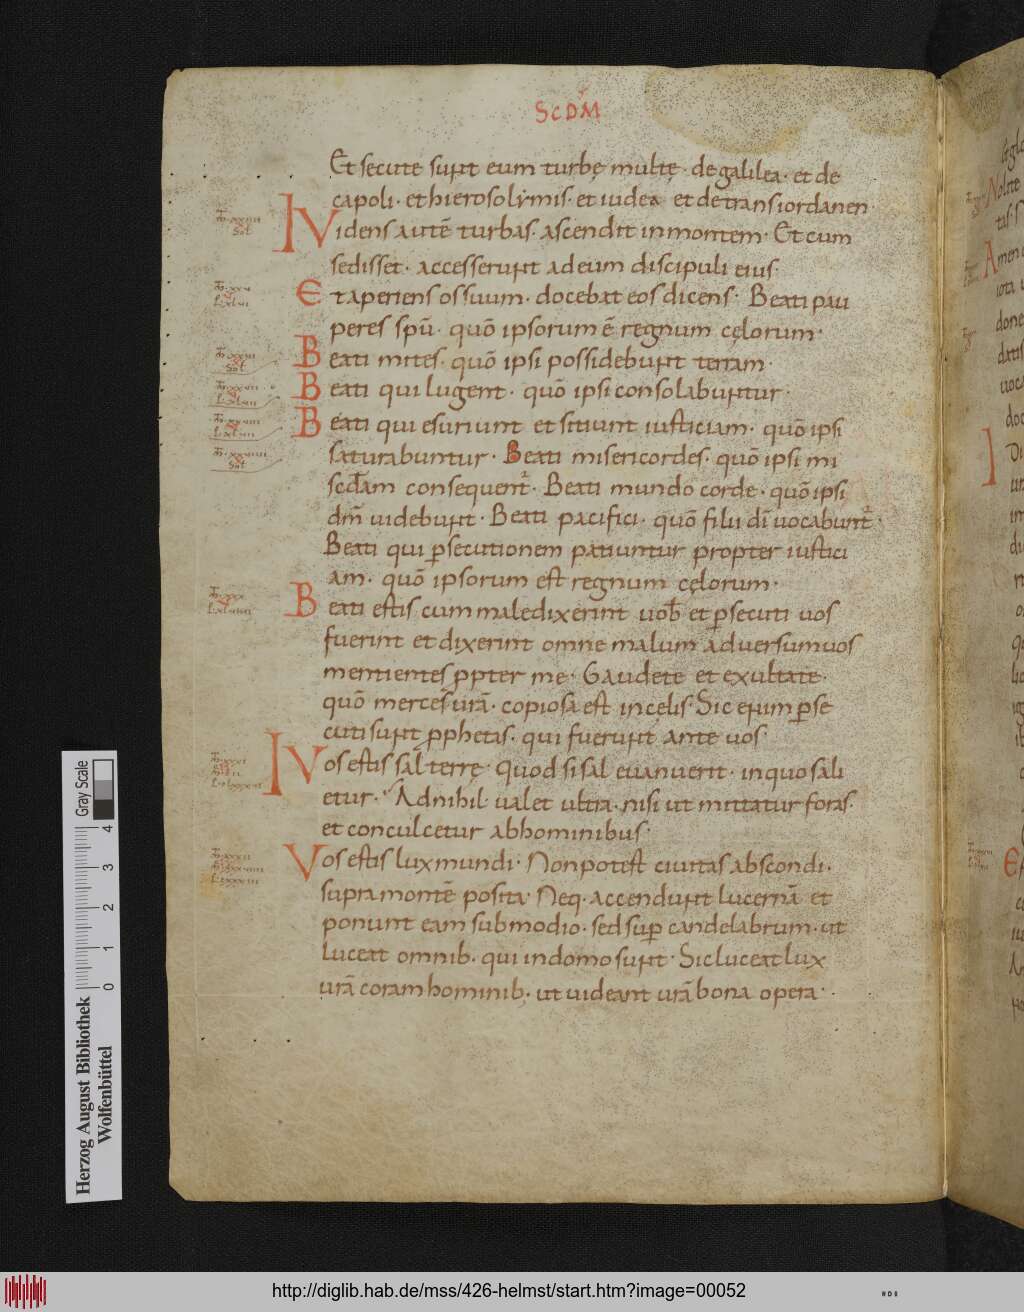 SCDM
Et secute sunt eum turbę multę · de galilea · et de
capoli · et hierosolymis · et iudea et de trans iordanen ·
Videns autē turbas · ascendit in montem · Et cum
sedisset · accesserunt ad eum discipuli eius ·
Et aperiens os suum · docebat eos dicens · Beati pau
peres spū · quō ipsorum ē regnum cęlorum ·
Beati mites · quō ipsi possidebunt terram ·
Beati qui lugent · quō ipsi consolabuntur ·
Beati qui esuriunt et sitiunt iusticiam · quō ipsi
saturabuntur · Beati misericordes · quō ipsi mi
scdam consequent · Beati mundo corde · quō ipsi
dm̄ uidebunt · Beati pacifici · quō filii dī uocabunt ·
Beati qui psecutionem patiuntur propter iustici
am · quō ipsorum est regnum cęlorum ·
Beati estis cum maledixerint uob et psecuti uos
fuerint et dixerint omne malum aduersum uos
mentientes ppter me · Gaudete et exultate ·
quō merces urā · copiosa est in celis · Sic enim pse
cuti sunt pphetas · qui fuerunt ante uos ·
Vos estis sal terrę · Quod si sal euanuerit · in quo sali
etur · Ad nihil ualet ultra · nisi ut mittatur foras ·
et conculcetur ab hominibus ·
Vos estis lux mundi · Non potest ciuitas abscondi ·
supra montē posita · Neq · accendunt lucernā et
ponunt eam sub modio · sed sup candelabrum · ut
luceat omnib · qui in domo sunt · Sic luceat lux
urā coram hominib · ut uideant urā bona opera ·
Herzog August Bibliothek
Wolfenbüttel
0 1 2 3 4
Gray Scale
http://diglib.hab.de/mss/426-helmst/start.htm?image=00052